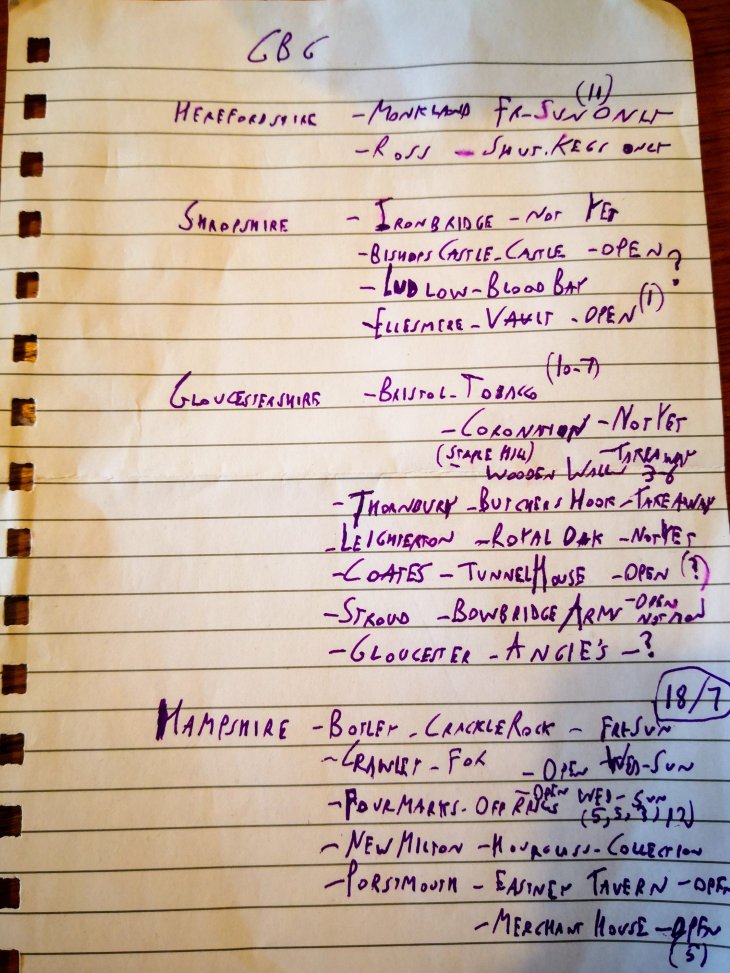 GBG
HEREFORDSHIRE - MONKLAND FR-SUN ONLY (11)
- ROSS - SHUT. KEGS ONLY
SHROPSHIRE - IRONBRIDGE - NOT YET
- BISHOPS CASTLE - CASTLE - OPEN ?
- LUDLOW - BLOOD BAY
- ELLESMERE - VAULT - OPEN (1)
GLOUCESTERSHIRE - BRISTOL - TOBACCO (10-7)
- CORONATION - NOT YET
(STAPE HILL) WOODEN WALL TAKEAWAY 3-8
- THORNBURY - BUTCHERS HOOK - TAKEAWAY
- LEIGHTERTON - ROYAL OAK - NOT YET
- COATES - TUNNEL HOUSE - OPEN (?)
- STROUD - BOWBRIDGE ARMS - OPEN NOT MON
- GLOUCESTER - ANGIE'S - ?
18/7
HAMPSHIRE - BOTLEY - CRACKLEROCK - FRI-SUN
- CRAWLEY - FOX - OPEN WED-SUN
- FOUR MARKS - OFF RAILS - OPEN WED - SUN
(5, 5, 3, 12)
- NEW MILTON - HOURGLASS - COLLECTION
- PORSTMOUTH - EASTNEY TAVERN - OPEN
- MERCHANT HOUSE - OPEN
(5)